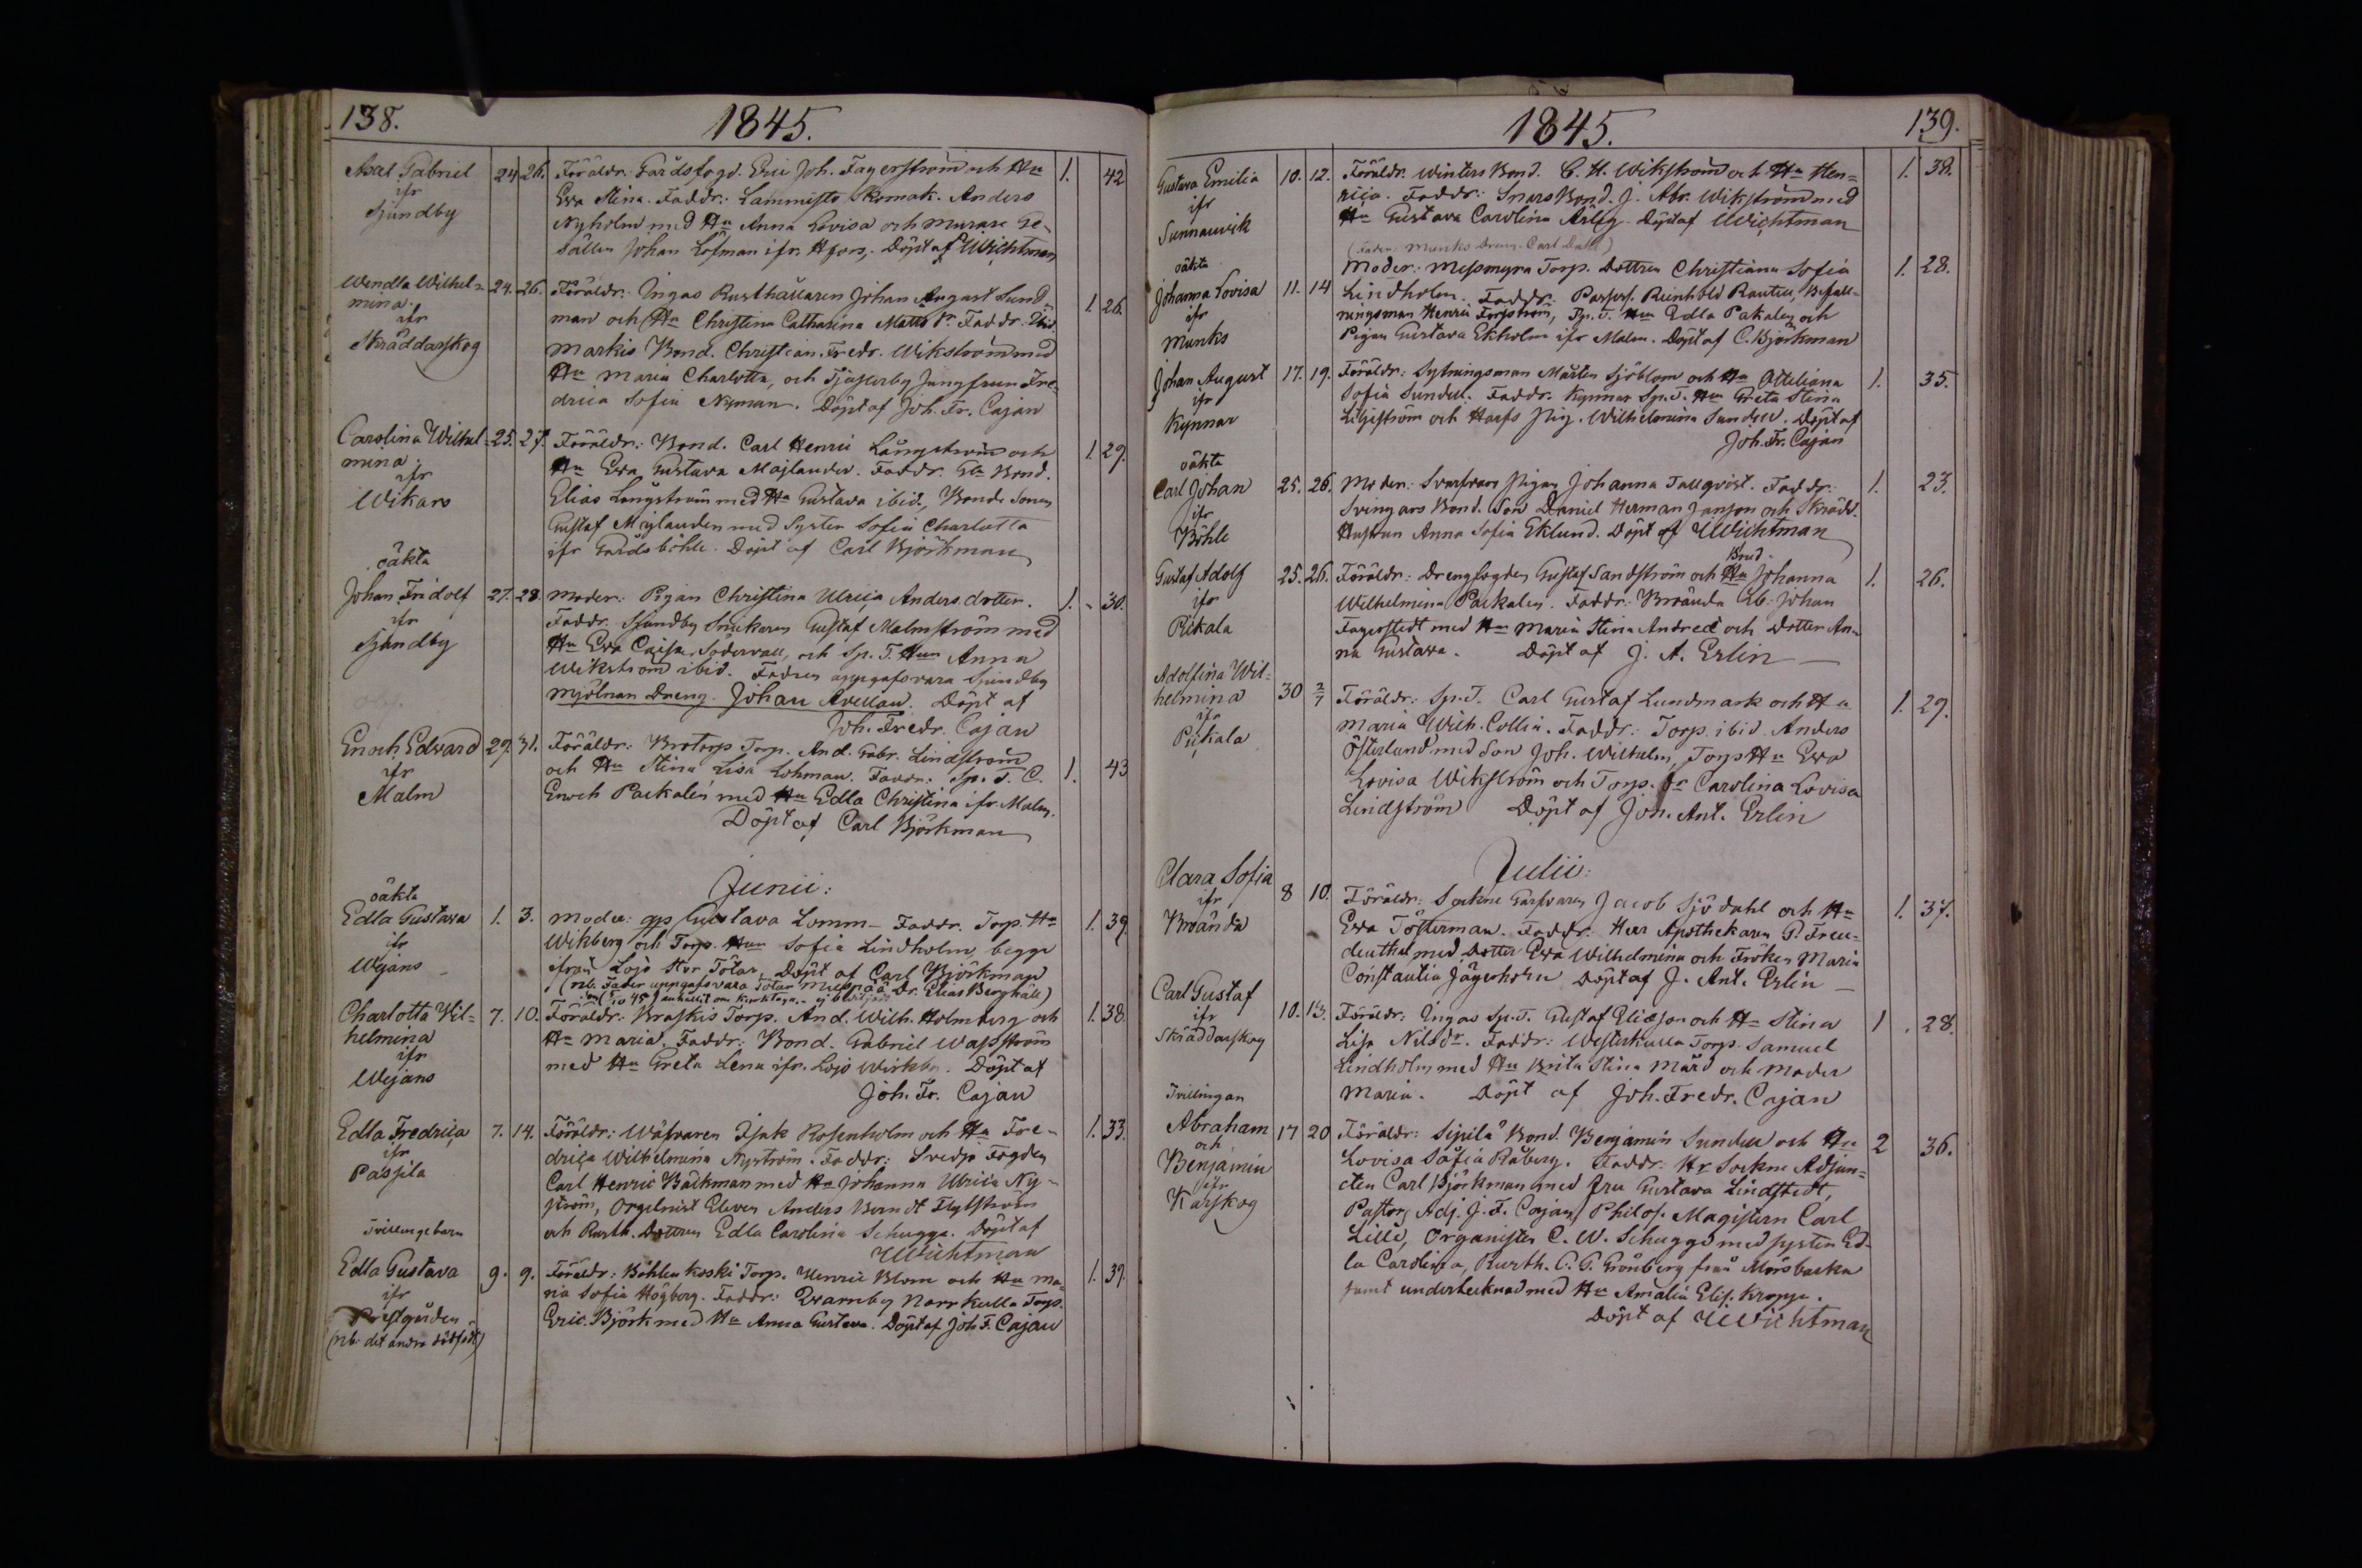 138.
1845.
Axel Gabriel
ifr
Sjundby
24 26.
Föräldr: Gårdsfogd. Eric Joh. Fagerström och Hu
Eva Stina. Faddr: Lammisto Skomak. Anders
Nyholm med Hu Anna Lovisa och Murare Ge-
sällen Johan Löfman ifr. Hfors. Döpt af Wichtman
1. 42
Wendla Wilhel=
mina
ifr
Skräddarskog
24. 26.
Föräldr: Ingas Rusthållaren Johan August Sund-
man och Hu Christina Catharina Matts dr. Faddr: Ibid.
Markis Bond. Christian Fredr. Wikström med
Hu Maria Charlotta, och Jungfrun Fre-
drica Sofia Nyman. Döpt af Joh. Fr. Cajan
1. 26.
Carolina Wilhel-
mina
ifr
Wikars
25. 27.
Föräldr: Bond. Carl Henric Långström och
Hu Eva Gustava Majlander. Faddr. Gla Bond.
Elias Långström med Hu Gustava ibid., Bonde Sonen
Gustaf Majlander med Syster Sofia Charlotta
ifr Gårdsböhle. Döpt af Carl Björkman
1. 29.
oäkta
Johan Fridolf
ifr
Sjundby
27. 28.
Moder: Pigan Christina Ulrica Anders dotter.
Faddr. Sjundby Snickaren Gustaf Malmström med
Hu Eva Caisa Södervall, och Sp. T. Hun Anna
Wikström ibid. Fadren uppgafs vara Sjundby
Mjölnar Dreng Johan Avellan. Döpt af
Joh. Fredr. Cajan
1. 30.
Enoch Edvard
ifr
Malm
29. 31.
Föräldr: Brotorp Torp. And. Gabr. Lindström
och Hu Stina Lisa Lohman. Faddr: Sp. T. C.
Enoch Packalén med Hu Edla Christina ifr Malm.
Döpt af Carl Björkman
1. 43
Junii:
oäkta
Edla Gustava
ifr
Wejans
1. 3.
Moder: Gustava Lomm - Faddr. Torp. Hu
Wikberg och Torp. Hun Sofia Lindholm, begge
ifrån Lojo Stor Tötar. Döpt af Carl Björkman
(nb. Fader uppgafs vara Tötar Dr. Elias Berghäll)
1. 39
Charlotta Wil=
helmina
ifr
Wejans
7. 10.
Föräldr: Braskis Torp. And. Wilh. Holmberg och
Hu Maria. Faddr: Bond. Gabriel Wasström
med Hu Greta Lena ifr. Lojo Wirkby. Döpt af
Joh. Fr. Cajan
1. 38
Edla Fredrica
ifr
Passila
7. 14.
Föräldr: Wäfvaren Isak Rosenholm och Hu Fre-
drica Wilhelmina Nyström. Faddr: Svedja Fogden
Carl Henric Bäckman med Hu Johanna Ulrica Ny-
ström, Orgelnist Eleven Anders Berndt Flytström
och Rusth. Dottren Edla Carolina Schugge. Döpt af
Wichtman
1. 33.
Tvillingebarn
Edla Gustava
ifr
Prestgården
(nb. det andra dödfödt)
9. 9.
Föräldr: Böhlen koski Torp. Henric Blom och Hu Ma-
ria Sofia Högberg. Faddr: Qvarnby Norrkulla Torp.
Eric Björk med Hu Anna Gustava. Döpt af Joh. F. Cajan
1. 39.
1845.
139.
Gustava Emilia
ifr
Sunnanvik
10. 12.
Föräldr. Winters Bond. C. H. Wikström och Hu Hen=
rica. Faddr: Snars Bond. J. Abr. Wikström med
Hu Gustava Carolina Ärlig. Döpt af Wichtman
1. 38.
(Fader: Munks Dreng. Carl Dahl)
oäkta
Johanna Lovisa
ifr
Munks
11. 14
Moder: Messmyra Torp. Dottren Christiana Sofia
Lindholm. Faddr: Reinhold Rautell, Befall-
ningsman Henric Forsström, Sp. T. Hun Edla Pakalen och
Pigan Gustava Ekholm ifr Malm. Döpt af C. Björkman
1. 28.
Johan August
ifr
Kynnar
17. 19.
Föräldr: Sytningsman Mårten Sjöblom och Hu Ottiliana
Sofia Sundell. Faddr. Kynnar Sp. T. Hun Greta Stina
Liljeström och Harfs Pig. Wilhelmina Sundell. Döpt af
Joh. Fr. Cajan
1. 35.
oäkta
Carl Johan
ifr
Böhle
25. 26.
Moder: Svarfvars Pigan Johanna Tallqvist. Faddr:
Svingars Bond. Son Daniel Herman Janson och Skrädd.
Hustrun Anna Sofia Eklund. Döpt af Wichtman
1. 23.
Gustaf Adolf
ifr
Pikala
25. 26.
Föräldr: Drengfogden Gustaf Sandström och Hu Johanna
Wilhelmina Packalen. Faddr: Broända Johan
Fagerstedt med Hu Maria Stina Andreé och Dotter An-
na Gustava. Döpt af J. A. Erlin
1. 26.
Adolfina Wil=
helmina
ifr
Pickala
30 2/7
Föräldr: Sp. T. Carl Gustaf Lundmark och Hu
Maria Wilh. Collin. Faddr: Torp. ibid. Anders
Österlund med Son Joh. Wilhelm, Torp Hu Eva
Lovisa Wikström och Torp. dr Carolina Lovisa
Lindström Döpt af Joh. Ant. Erlin
1. 29.
Julii:
Clara Sofia
ifr
Broända
8 10.
Föräldr: Sockne Garfvaren Jacob Sjödahl och Hu
Eva Tösterman. Faddr: Herr Apothekaren G. Freu-
denthal med Dotter Eva Wilhelmina och Fröken Maria
Constantia Jägerhorn Döpt af J. Ant. Erlin
1. 37.
Carl Gustaf
ifr
Skräddarskog
10. 13.
Föräldr: Ingas Sp. T. Gustaf Eliesson och Hu Stina
Lisa Nilsdr. Faddr: Westerkulla Torp. Samuel
Lindholm med Hu Brita Stina Mård och Moder
Maria. Döpt af Joh. Fredr. Cajan
1. 28.
Tvillingar
Abraham
och
Benjamin
ifr
Karskog
17 20
Föräldr: Sipilä Bond. Benjamin Sundell och Hu
Lovisa Sofia Råberg. Faddr: Hr Sockne Adjun-
cten Carl Björkman med Fru Gustava Lindstedt,
Pastors Adj. J. F. Cajan, Philos. Magistern Carl
Lille, Organisten C. W. Schugge med syster Ed-
la Carolina, Rusth. C. G. Grönberg från Mörsbacka
samt undertecknad med Hu Amalia Elis. Kropp.
Döpt af Wichtman
2 36.